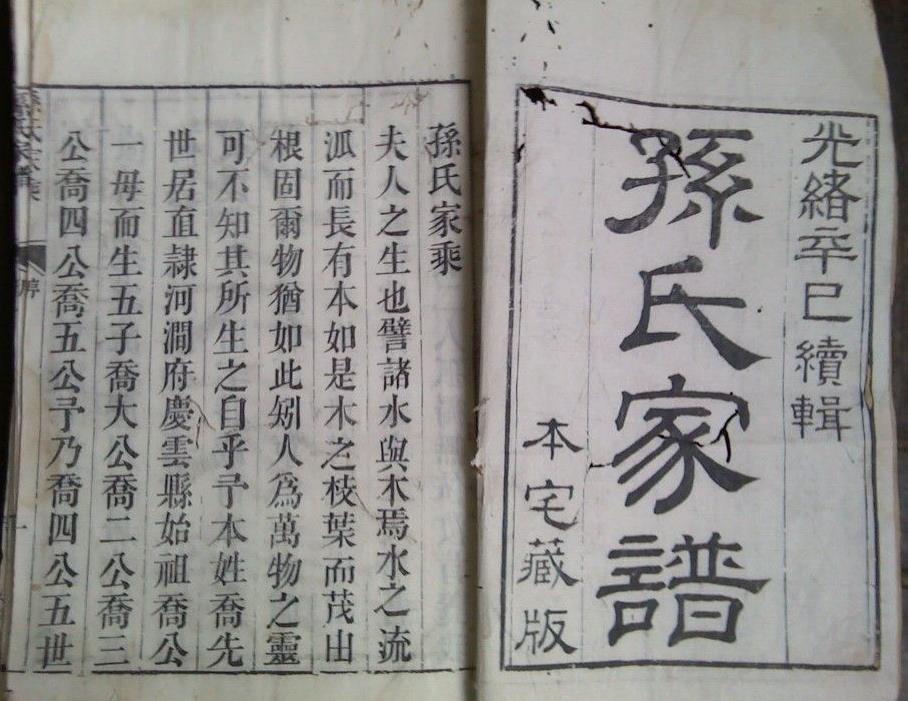 光緒辛巳續輯
孫氏家譜
本宅藏版
孫氏家乘
夫人之生也譬諸水與木焉水之流
派而長有本如是木之枝葉而茂出
根固爾物猶如此矧人爲萬物之靈
可不知其所生之自乎予本姓喬先
世居直隸河澗府慶雲縣始祖喬公
一母而生五子喬大公喬二公喬三
公喬四公喬五公予乃喬四公五世